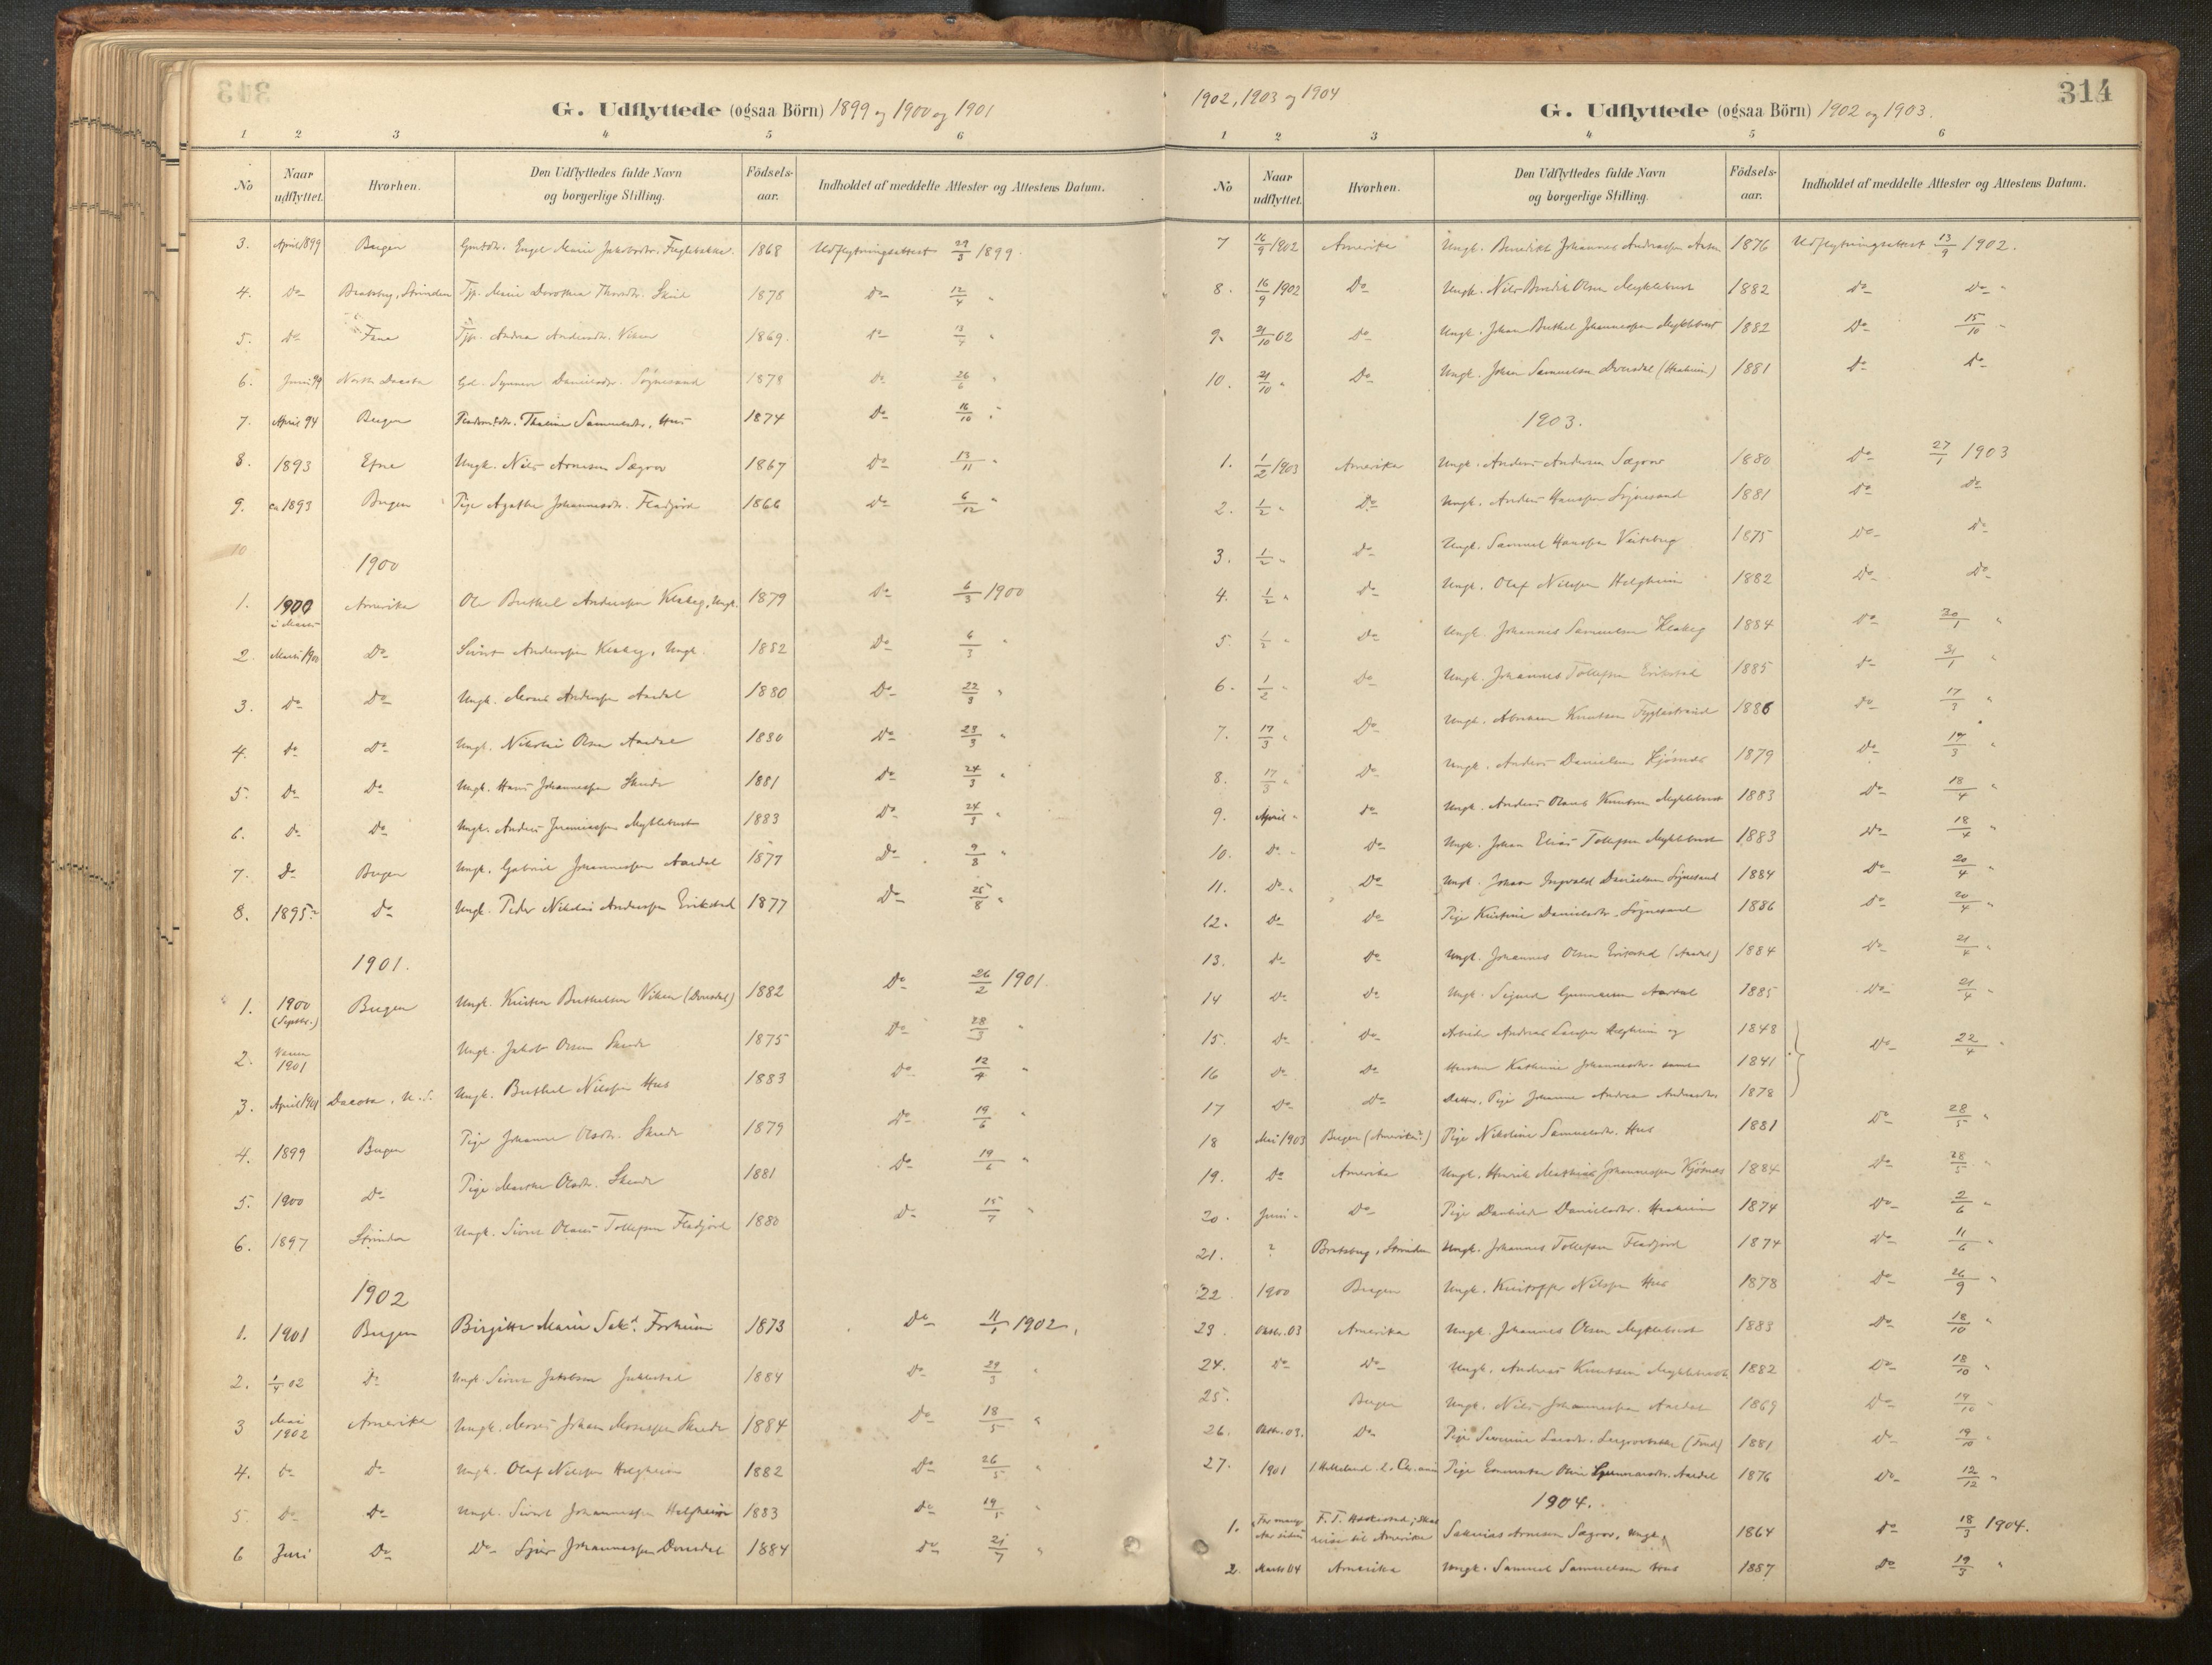 G. Udflyttede (ogsaa Börn) 1899 og 1900 og 1901
1 2 3 4 5 6
No Naar udflyttet. Hvorhen. Den Udflyttedes fulde Navn og borgerlige Stilling. Födsels-aar. Indholdet af meddelte Attester og Attestens Datum.
3. April 1899 Bergen Engel Marie 1868 Udflytningsattest 29/3 1899.
4. Do Bratsberg, Strinden Marie Dorothea 1878 Do 12/4 "
5. Do Andrea Andersdtr. Viken 1869. Do 13/4 "
6. Juni 99 North Dacota Synneve Danielsdtr. Søgnesand 1878 Do 26/6 "
7. April 94 Bergen Thaline Samuelsdtr. Hus 1874 Do 16/10 "
8. 1893 Etne Ungk. Nils Arnesen Sægrov 1867 Do 13/11 "
9. ca 1893 Bergen Pige Agathe Johannesdtr. Fladjord 1866 Do 6/12 "
10
1900
1. 1900 i Marts Amerika Ole Berthel Anderssen Klakeg, Ungk. 1879 Do 6/3 1900
2. Marts 1900 Do Sivert Anderssen Klakeg, Ungk. 1882 Do 6/3 "
3. Do Do Ungk. Anderssen Aardal 1880 Do 22/3 "
4. Do Do Ungk. Nikolai Olsen Aardal 1880 Do 23/3 "
5. Do Do Ungk. Hans Johannessen Skrede 1881 Do 24/3 "
6. Do Do Ungk. Anders Jeremiassen Myklebust 1883 Do 24/3 "
7. Do Bergen Ungk. Gabriel Johannessen Aardal 1877 Do 9/8 "
8. 1895? Do Ungk. Peder Nikolai Anderssen Erikstad 1877 Do 25/8 "
1901.
1. 1900 (Septbr.) Bergen Ungk. Kristen Berthelsen Viken (Dvergsdal) 1882 Do 26/2 1901.
2. Vaaren 1901 Ungk. Jakob Olsen Skrede 1875 Do 28/3 "
3. April 1901 Dacota, N. Ungk. Berthel Nilssen Hus 1883 Do 12/4 "
4. 1899 Bergen Pige Johanne Olsdtr. Skrede 1879 Do 19/6 "
5. 1900 Do Pige Marthe Olsdtr. Skrede 1881 Do 19/6 "
6. 1897 Strinden Ungk. Sivert Olaus Tollefsen Fladjord 1880 Do 15/7 "
1902
1. 1901 Bergen Birgitte Marie 1873 Do 11/1 1902.
2. 1/4 02 Do Ungk. Sivert Jakobsen Juklestad 1884 Do 29/3 "
3 Mai 1902 Amerika Ungk. Moses Johan Mosessen Skrede 1884 Do 18/5 "
4. Do Do Ungk. Olaf Nilssen Helgheim 1882 Do 26/5 "
5. Do Do Ungk. Sivert Johannessen Helgheim 1883 Do 19/ "
6 Juni Do Do Johannessen 1884 Do 21/7 "
1902, 1903 og 1904
314
G. Udflyttede (ogsaa Börn) 1902 og 1903.
1 2 3 4 5 6
No Naar udflyttet. Hvorhen. Den Udflyttedes fulde Navn og borgerlige Stilling. Födsels-aar. Indholdet af meddelte Attester og Attestens Datum.
7 16/9 1902 Amerika Ungk. Benedikt Johannes Andreassen 1876 Udflytningsattest 13/9 1902.
8. 16/9 1902 Do Ungk. Nils Bendik Olsen Myklebust 1882 Do Do "
9. 21/10 02 Do Ungk. Johan Berthel Johannessen Myklebust 1882 Do 15/10 "
10. 21/10 " Do Ungk. Johan Samuelsen (Haaheim) 1881 Do Do
1903.
1. 1/2 1903 Amerika Ungk. Anders Andersen Sægrov 1880 Do 27/1 1903
2. 1/2 " Do Ungk. Anders Hanssen Søgnesand 1881 Do Do
3. 1/2 " Do Ungk. Samuel Hanssen Veiteberg 1875 Do Do
4. 1/2 " Do Ungk. Olaf Nilssen Helgheim 1882 Do Do
5. 1/2 " Do Ungk. Johannes Samuelsen Klakeg 1884 Do 30/1 "
6. 1/2 " Do Ungk. Johannes Tollefsen Erikstad 1885 Do 31/1 "
7. 17/3 " Do Ungk. Abraham Knutsen 1886 Do 17/3 "
8. 17/3 " Do Ungk. Anders Danielsen Kjøsnes 1879 Do 17/3 "
9. April " Do Ungk. Anders Olaus Knutsen Myklebust 1883 Do 18/4 "
10. Do " Do Ungk. Johan Elias Tollefsen Myklebust 1883 Do 18/4 "
11. Do " Do Ungk. Johan Ingvald Danielsen Søgnesand 1884 Do 20/4 "
12. Do Do Pige Kristine Danielsdtr. Søgnesand 1886 Do 20/4 "
13. Do Do Ungk. Johannes Olsen Erikstad (Aardal) 1884 Do 21/4 "
14 Do Do Ungk. Sigurd Gunnarsen Aardal 1885 Do 21/4 "
15. Do Do Andreas Larssen Helgheim og 1848
16 Do Do Hustru Kathrine Johannesdtr. samme 1841 Do 22/4 "
17 Do Do Datter, Pige Johanne Andrea Andreasdtr. 1878
18 Mai 1903 Bergen (Amerika?) Pige Nikoline Samuelsdtr. Hus 1881 Do 28/5 "
19. Do Amerika Ungk. Henrik Mathias Johannessen Kjøsnes 1884 Do 28/5 "
20. Juni " Do Pige Danielsdtr. Haaheim 1874 Do 2/6 "
21. ? Bratsberg, Strinden Ungk. Johannes Tollefsen Fladjord 1874 Do 11/6 "
22 1900 Bergen Ungk. Kristoffer Nilssen Hus 1878 Do 26/9 "
23. Oktbr. 03 Amerika Ungk. Johannes Olsen Myklebust 1883 Do 18/10 "
24. Do Do Ungk. Andreas Knutsen Myklebust 1882 Do 18/10 "
25. Bergen Ungk. Nils Johannessen Aardal 1869 Do 19/10 "
26. Oktbr. 03. Do Pige Severine Larsdtr. 1881 Do 19/10 "
27. 1901 Pige Oline Gunnarsdtr. Aardal 1876 Do 12/12 "
1904.
1. For mange Aar siden reise til Amerika Sakarias Arnesen Sægrov, Ungk. 1864 Do 18/3 1904.
2. Marts 04 Amerika Ungk. Samuel Samuelsen Hus 1887 Do 19/3 "